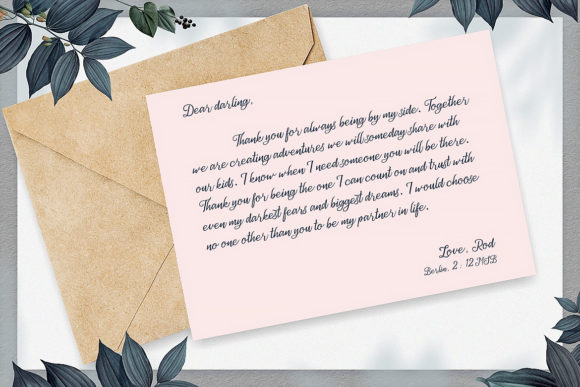 Dear darling,
Thank you for always being by my side. Together
we are creating adventures we will someday share with
our kids. I know when I need someone you will be there.
Thank you for being the one I can count on and trust with
even my darkest fears and biggest dreams. I would choose
no one other than you to be my partner in life.
Love, Rod
Berlin, 2 : 12 MSB